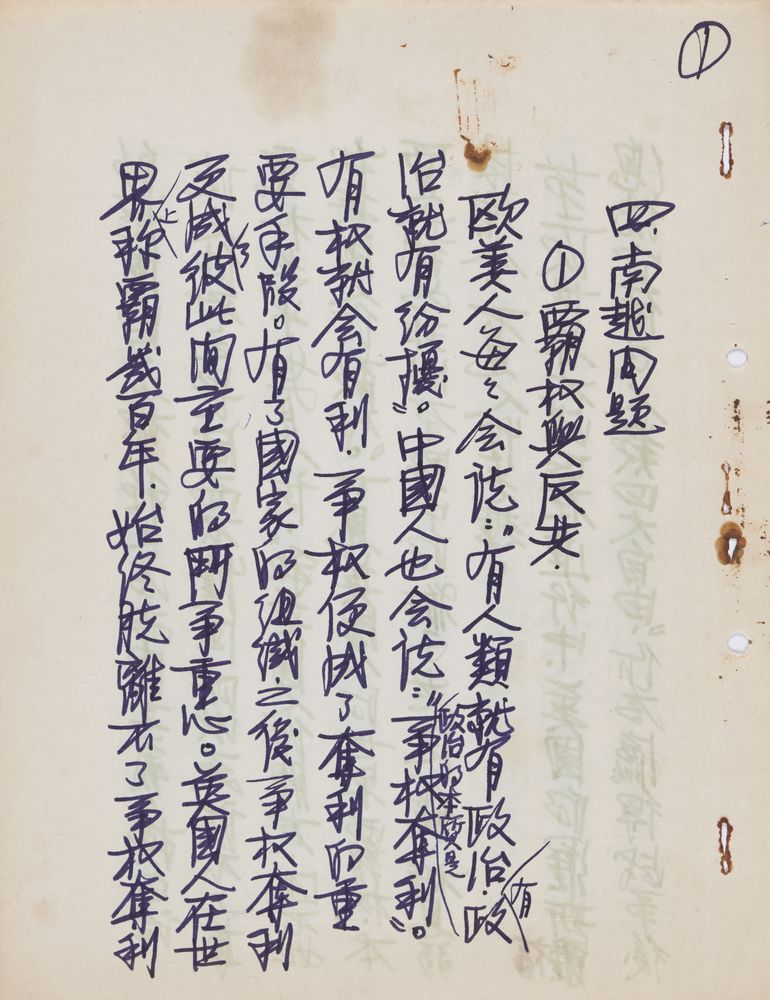 ①
四.南越问题
①霸权與反共.
欧美人每々会说：“有人類就有政治.有政
治就有纷擾”。中國人也会说：“政治的本质是争权奪利”。
有权就会有利.争权便成了奪利的重
要手段。有了國家的组織之後争权奪利
更成了彼此间主要的鬥争重心。英國人在世
界上称霸几百年.始终脱離不了争权奪利